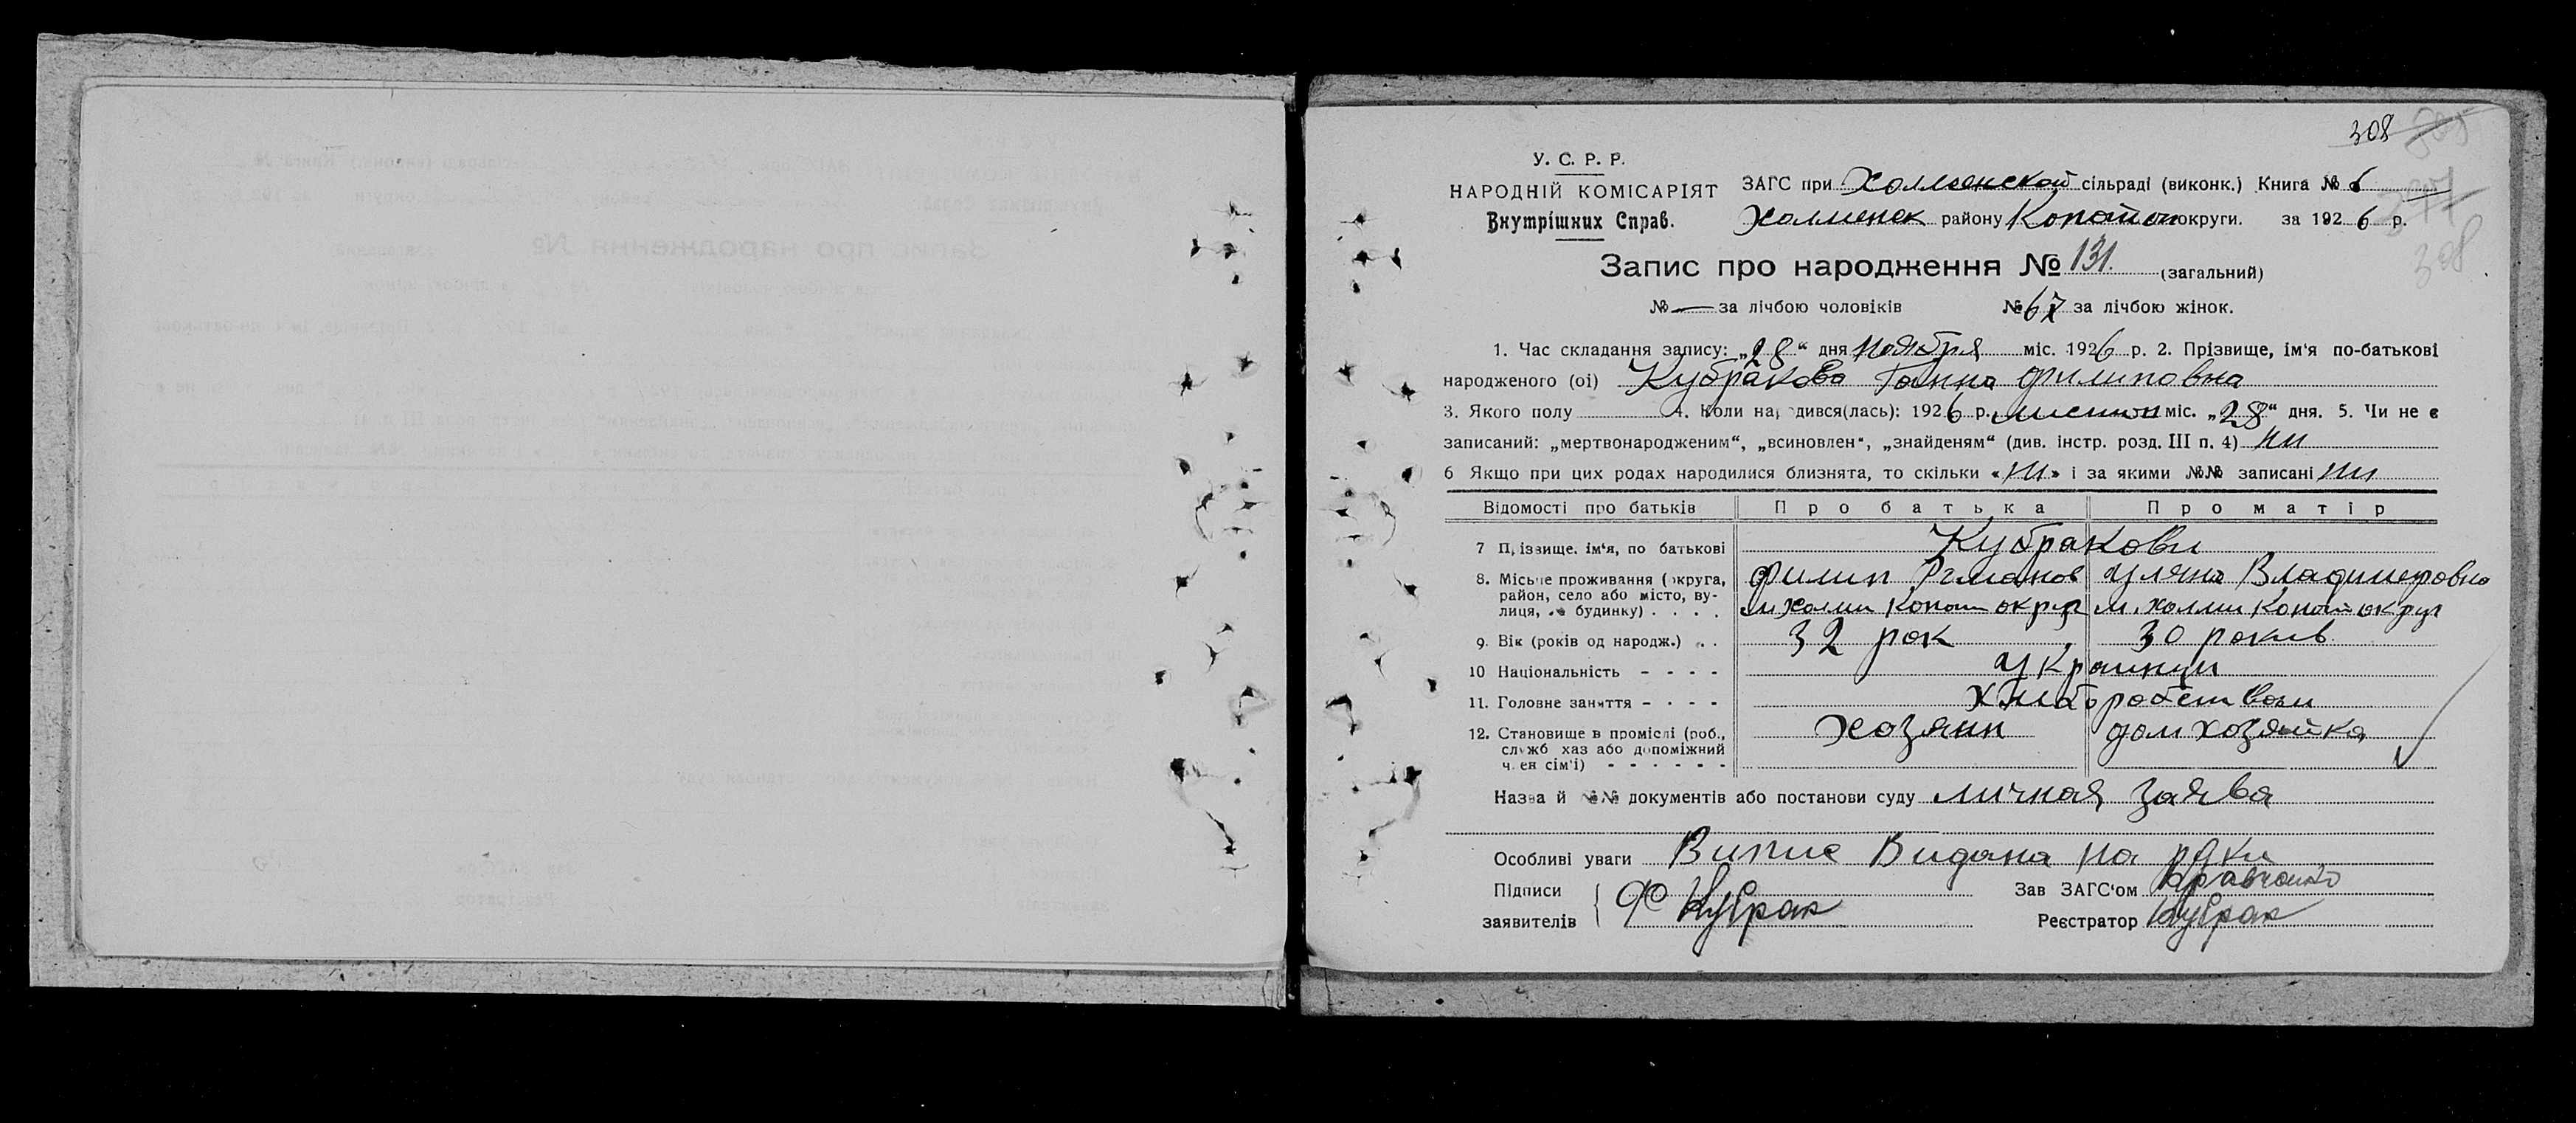 308
У. С. Р. Р.
НАРОДНІЙ КОМІСАРІЯТ
Внутрішних Справ.
ЗАГС при Холменской сільраді (виконк.) Книга № 6
Холменск району Конотоп округи. за 1926 р.
308
Запис про народження № 131. (загальний)
№ — за лічбою чоловіків № 67 за лічбою жінок.
1. Час складання запису: „28“ дня ноября міс. 1926 р. 2. Прізвище, ім'я по-батькові
народженого (ої) Кубракова Ганна Филиповна
3. Якого полу 4. Коли народився(лась): 1926 р. листоп міс. „28“ дня. 5. Чи не є
записаний: „мертвонародженим“, „всиновлен“, „знайденям“ (див. інстр. розд. III п. 4) ни
6 Якщо при цих родах народилися близнята, то скільки «ни» і за якими №№ записані ни
Відомості про батьків Про батька Про матір
7 Прізвище. ім'я, по батькові Кубракови
8. Місьце проживання (округа, Филип Романов Уляна Владимеровна
район, село або місто, ву-
лиця, № будинку) . . . . м. холми Конот округ м. холми Конот округ
9. Вік (років од народж.) . . 32 рок 30 рокив
10 Національність - - - - Украинци
11. Головне заняття - - - - Хлиборобством
12. Становище в промислі (роб., Хозяин домхозяйка
служб хаз або допоміжний
член сім'ї) - - - - - -
Назва й №№ документів або постанови суду личная заява
Особливі уваги Випис Видана на руки
Підписи Зав ЗАГС'ом Кравченко
заявителів Ф Кубрак Реєстратор Кубрак